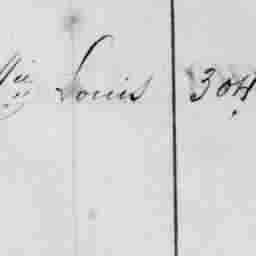 Louis 304